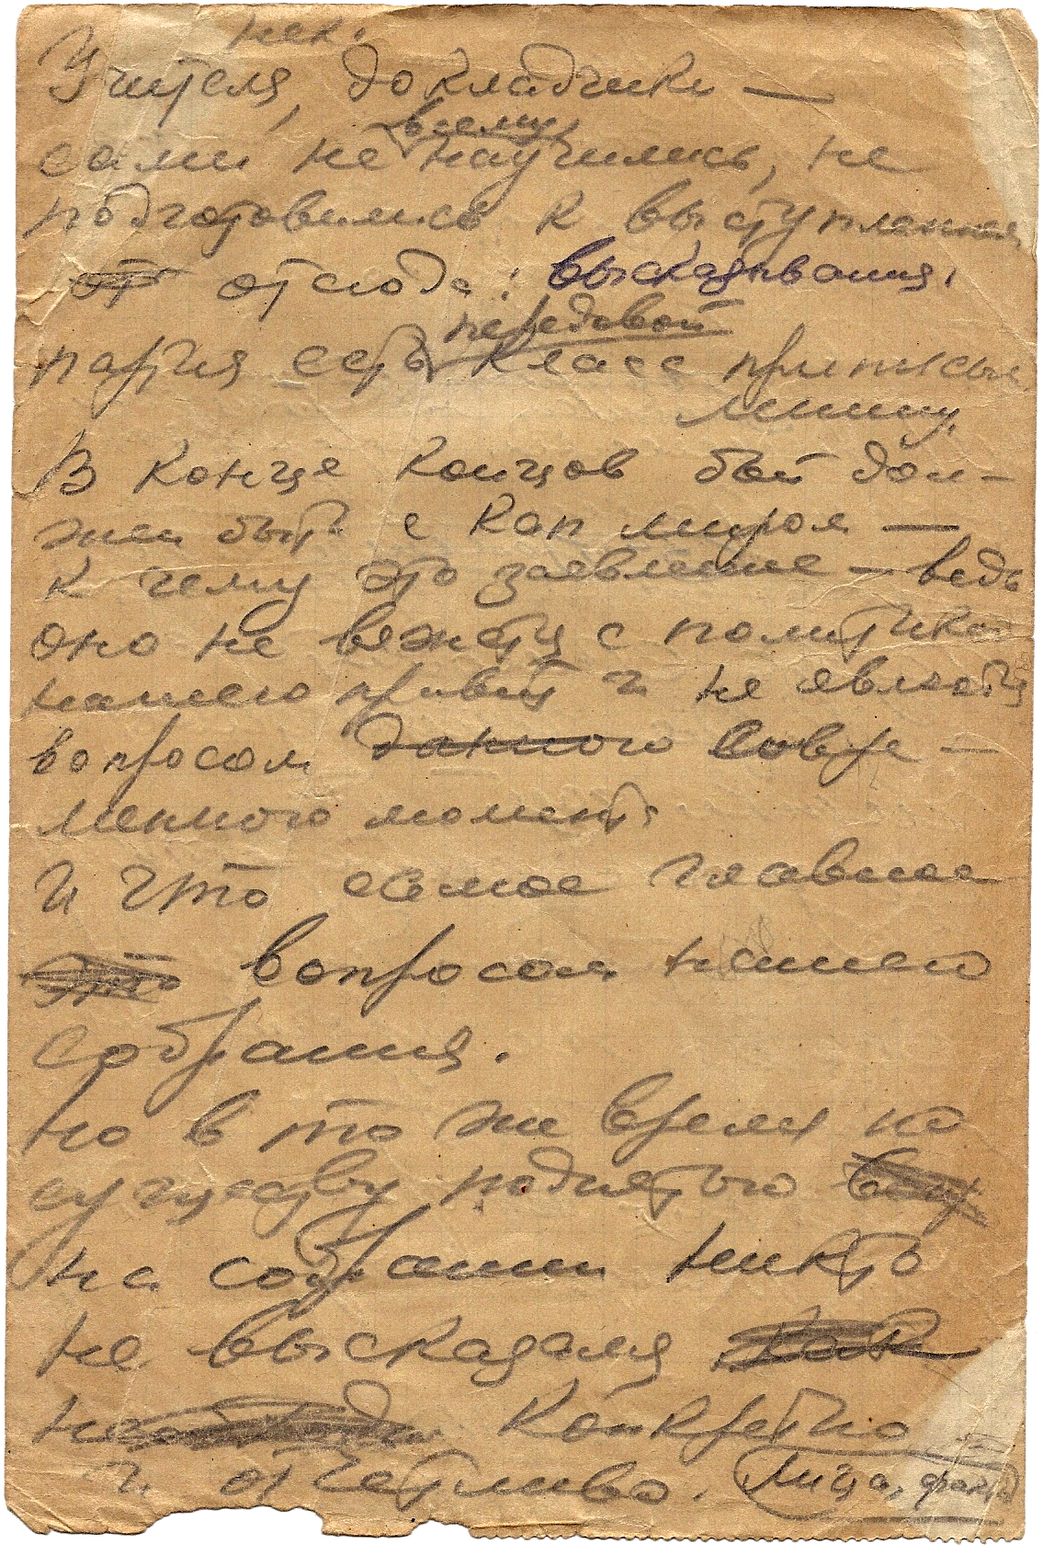 нек.
Учителя, докладчики —
всему
сами не научились, не
подготовились к выступлению
от отсюда: высказывания,
передовой
партия есть класс
В конце концов бой дол-
жен быть с кап миром —
к чему это заявление — ведь
оно не вяжется с политикой
нашего и не является
вопросом данного Совре-
менного момента
И что самое главное
это вопросом нашего
собрания.
Но в то же время по
существу поднятого
на собрании никто
не высказался как
конкретно
и отчетливо. Лица, факты